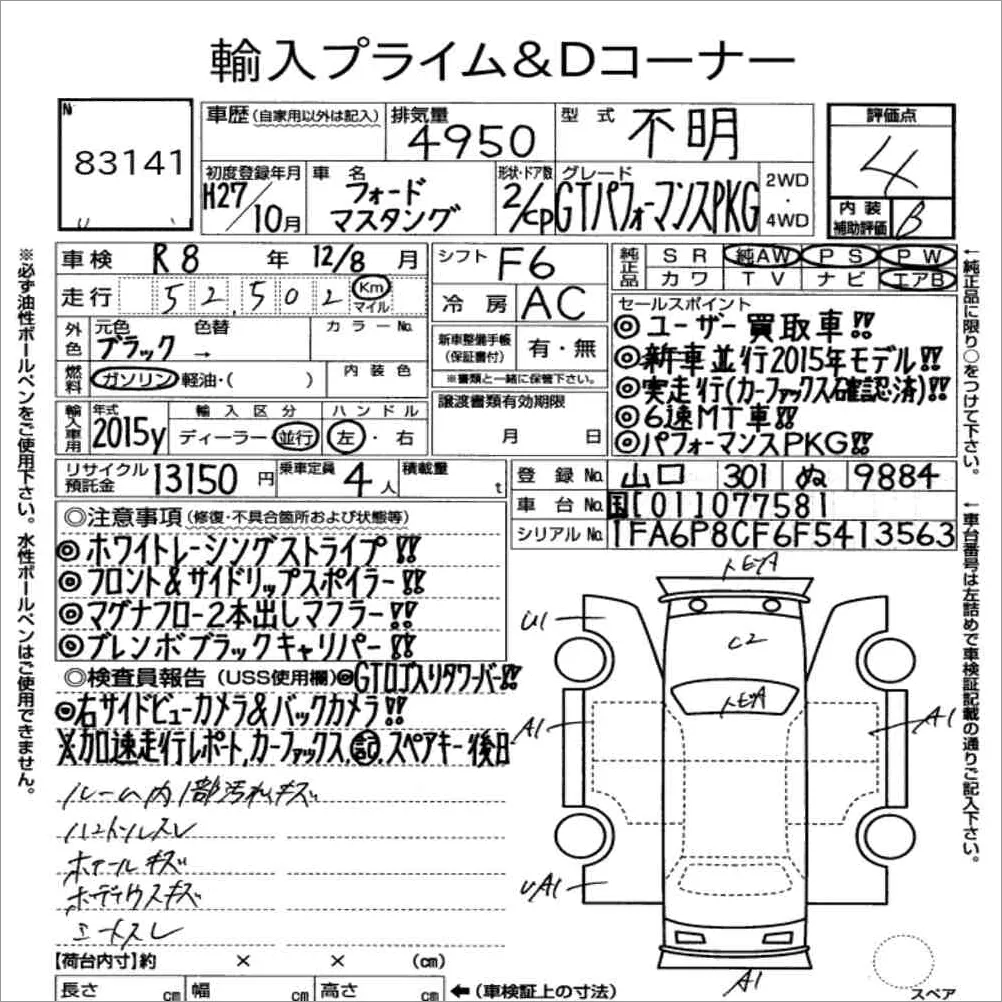 輸入プライム&Dコーナー
N
83141
車歴(自家用以外は記入)
排気量 4950
型式 不明
評価点
4
初度登録年月 H27/10月
車名 フォード マスタング
形状・ドア数 2/CP
グレード GTパフォーマンスPKG
2WD・4WD
内装補助評価 B
車検 R8年 12/8月
シフト F6
純正品 SR 純AW PS PW
カワ TV ナビ エアB
走行 52,502 Km マイル
冷房 AC
外色 元色 ブラック 色替 → カラーNo.
新車整備手帳(保証書付) 有・無
※書類と一緒に保管下さい。
セールスポイント
◎ユーザー買取車!!
◎新車並行2015年モデル!!
◎実走行(カーファックス確認済)!!
◎6速MT車!!
◎パフォーマンスPKG!!
燃料 ガソリン 軽油・( ) 内装色
輸入車用 年式 2015y 輸入区分 ディーラー 並行 ハンドル 左・右
譲渡書類有効期限
月 日
リサイクル預託金 13150円 乗車定員 4人 積載量 t
登録No. 山口 301 ぬ 9884
車台No. 国[C011077581
シリアルNo. 1FA6P8CF6F5413563
◎注意事項(修復・不具合箇所および状態等)
◎ホワイトレーシングストライプ!!
◎フロント&サイドリップスポイラー!!
◎マグナフロー2本出しマフラー!!
◎ブレンボブラックキャリパー!!
◎検査員報告(USS使用欄)◎GTロゴ入りタワーバー!!
◎右サイドビューカメラ&バックカメラ!!
※加速走行レポート,カーファックス,記,スペアキー後日
ルーム内1部汚れキズ
ハンドルスレ
ホイールキズ
ボディウスキズ
シートスレ
【荷台内寸】約 × × (cm)
長さ cm 幅 cm 高さ cm ←(車検証上の寸法)
トビA
U1
C2
トビA
A1
A1
UA1
A1
スペア
※必ず油性ボールペンをご使用下さい。水性ボールペンはご使用できません。
←純正品に限り○をつけて下さい。
←車台番号は左詰めで車検証記載の通りご記入下さい。